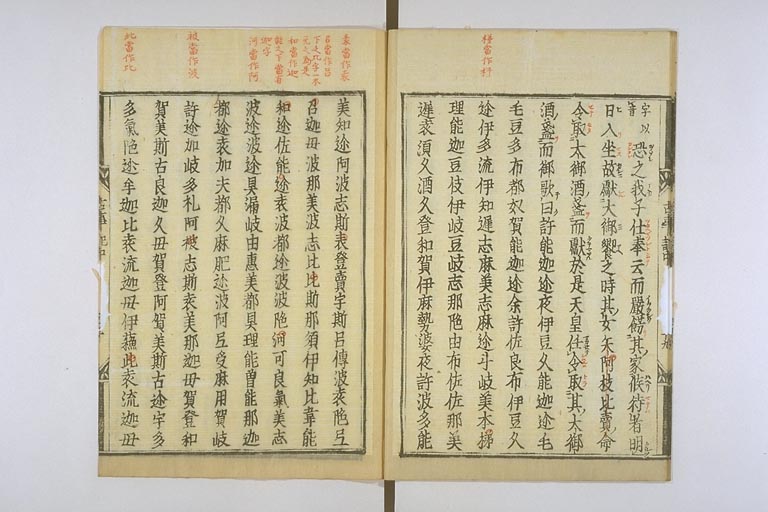 字以音恐之我子仕奉云而嚴餝其家候待者明
日入坐故獻大御饗之時其女矢阿枝比賣命
令取大御酒盞而獻於是天皇任令取其大御
酒盞而御歌曰許能迦迩夜伊豆久能迦迩毛
毛豆多布都奴賀能迦迩余許佐良布伊豆久
迩伊多流伊知遲志麻美志麻迩斗岐美本
理能迦豆伎伊岐豆岐志那陁由布佐佐那美
遲袁須久酒久登和賀伊麻勢婆夜許波多能
當作杼
表當作袁
召當作呂
下之比字一本
无之為是
和當作迦
能之下當有
迦字
河當作阿
被當作波
此當作比
美知迩阿波志斯表登賣宇斯呂傳波袁陁呂
召迦毋波那美波志比比斯那須伊知比韋能
和迩佐能迩袁波都迩波波陁河可良氣美志
波迩波迩具漏岐由惠美都具理能曽能那迦
都迩袁加夫都久麻肥迩波阿弖受麻用賀岐
許迩加岐多礼阿被志斯袁美那迦毋賀登和
賀美斯古良迦久毋賀登阿賀美斯古迩宇多
多氣陁迩牟迦比袁流迦毋伊蘓此袁流迦毋